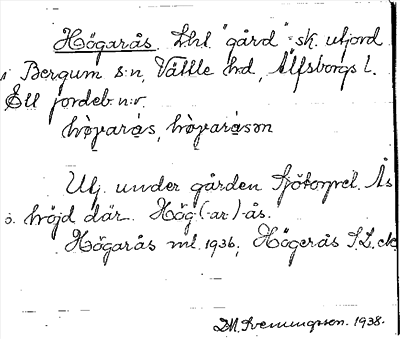 Högarås. Lhl. "gård" = sk. utjord
i Bergum s:n, Vättle h:d, Älfsborgs l.
Ett jordeb. n:r.
Utj. under gården Sjötorpet. Ås
o. höjd där. Hög(-ar-)-ås.
Högarås ml. 1936, Högerås J.L. ck.
D.M. Svenningsson. 1938.